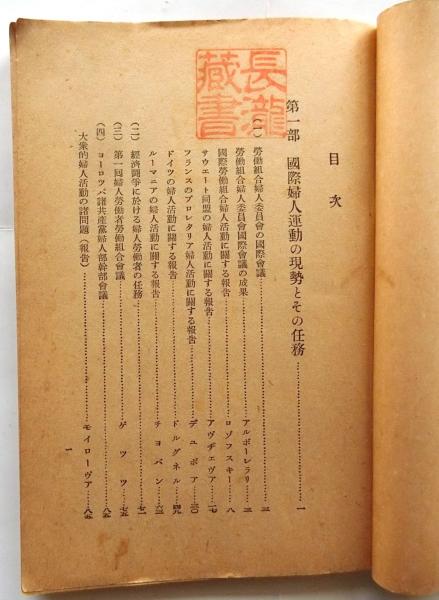 目次
第一部 國際婦人運動の現勢とその任務……一
(一) 勞働組合婦人委員會の國際會議……三
勞働組合婦人委員會國際會議の成果……アルボーレラリ……三
國際勞働組合婦人活動に關する報告……ロゾフスキー……八
サウエート同盟の婦人活動に關する報告……アヴデェヴァ……一七
フランスのプロレタリア婦人活動に關する報告……デュボア……三〇
ドイツの婦人活動に關する報告……ドルグネル……四九
ルーマニアの婦人活動に關する報告……チョバン……六三
(二) 經濟鬪爭に於ける婦人勞働者の任務……七一
(三) 第一回婦人勞働者勞働組合會議……ゲツツ……七五
(四) ヨーロツパ諸共産黨婦人部幹部會議……八五
大衆的婦人活動の諸問題(報告)……モイローヴア……八五
一
長瀧
藏書